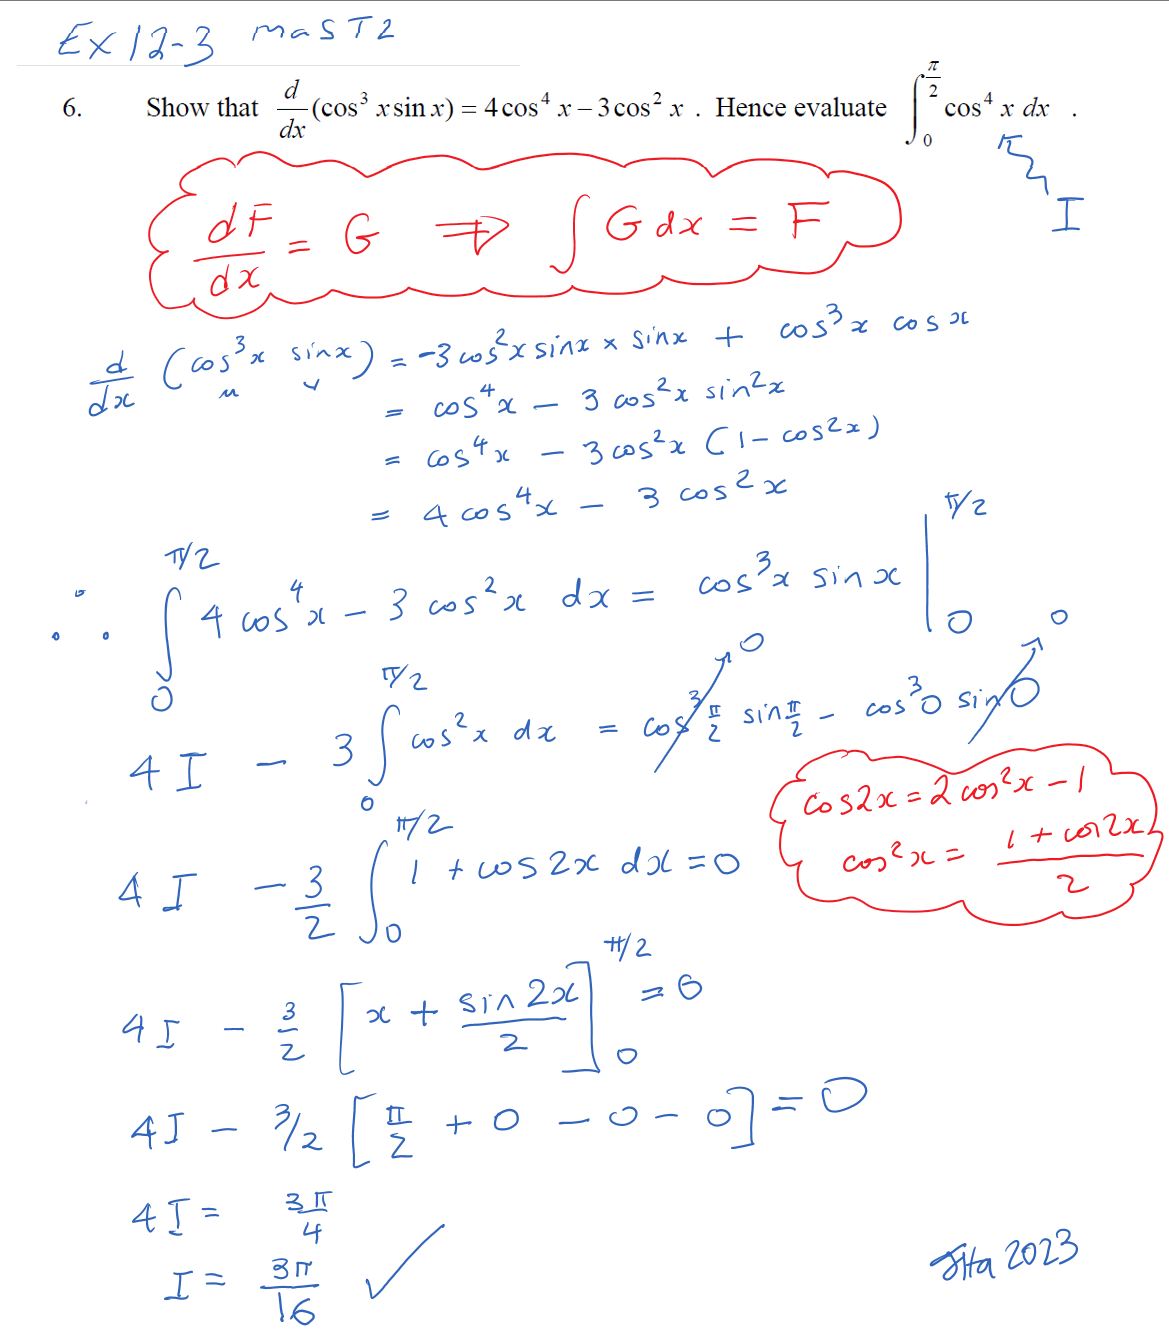 Ex 12-3 MaST2
6. Show that d/dx (cos³ x sin x) = 4cos⁴ x − 3cos² x . Hence evaluate ∫₀^(π/2) cos⁴ x dx .
I
dF/dx = G ⇒ ∫ G dx = F
d/dx (cos³x sinx) = -3cos²x sinx × sinx + cos³x cosx
u v
= cos⁴x − 3 cos²x sin²x
= cos⁴x − 3cos²x (1 − cos²x)
= 4 cos⁴x − 3 cos²x
∴ ∫₀^(π/2) 4 cos⁴x − 3 cos²x dx = cos³x sinx |₀^(π/2)
4I − 3 ∫₀^(π/2) cos²x dx = cos³ π/2 sin π/2 − cos³0 sin0
0 0
cos2x = 2cos²x − 1
cos²x = (1 + cos2x)/2
4I − 3/2 ∫₀^(π/2) 1 + cos2x dx = 0
4I − 3/2 [x + sin2x/2]₀^(π/2) = 0
4I − 3/2 [π/2 + 0 − 0 − 0] = 0
4I = 3π/4
I = 3π/16 ✓
2023